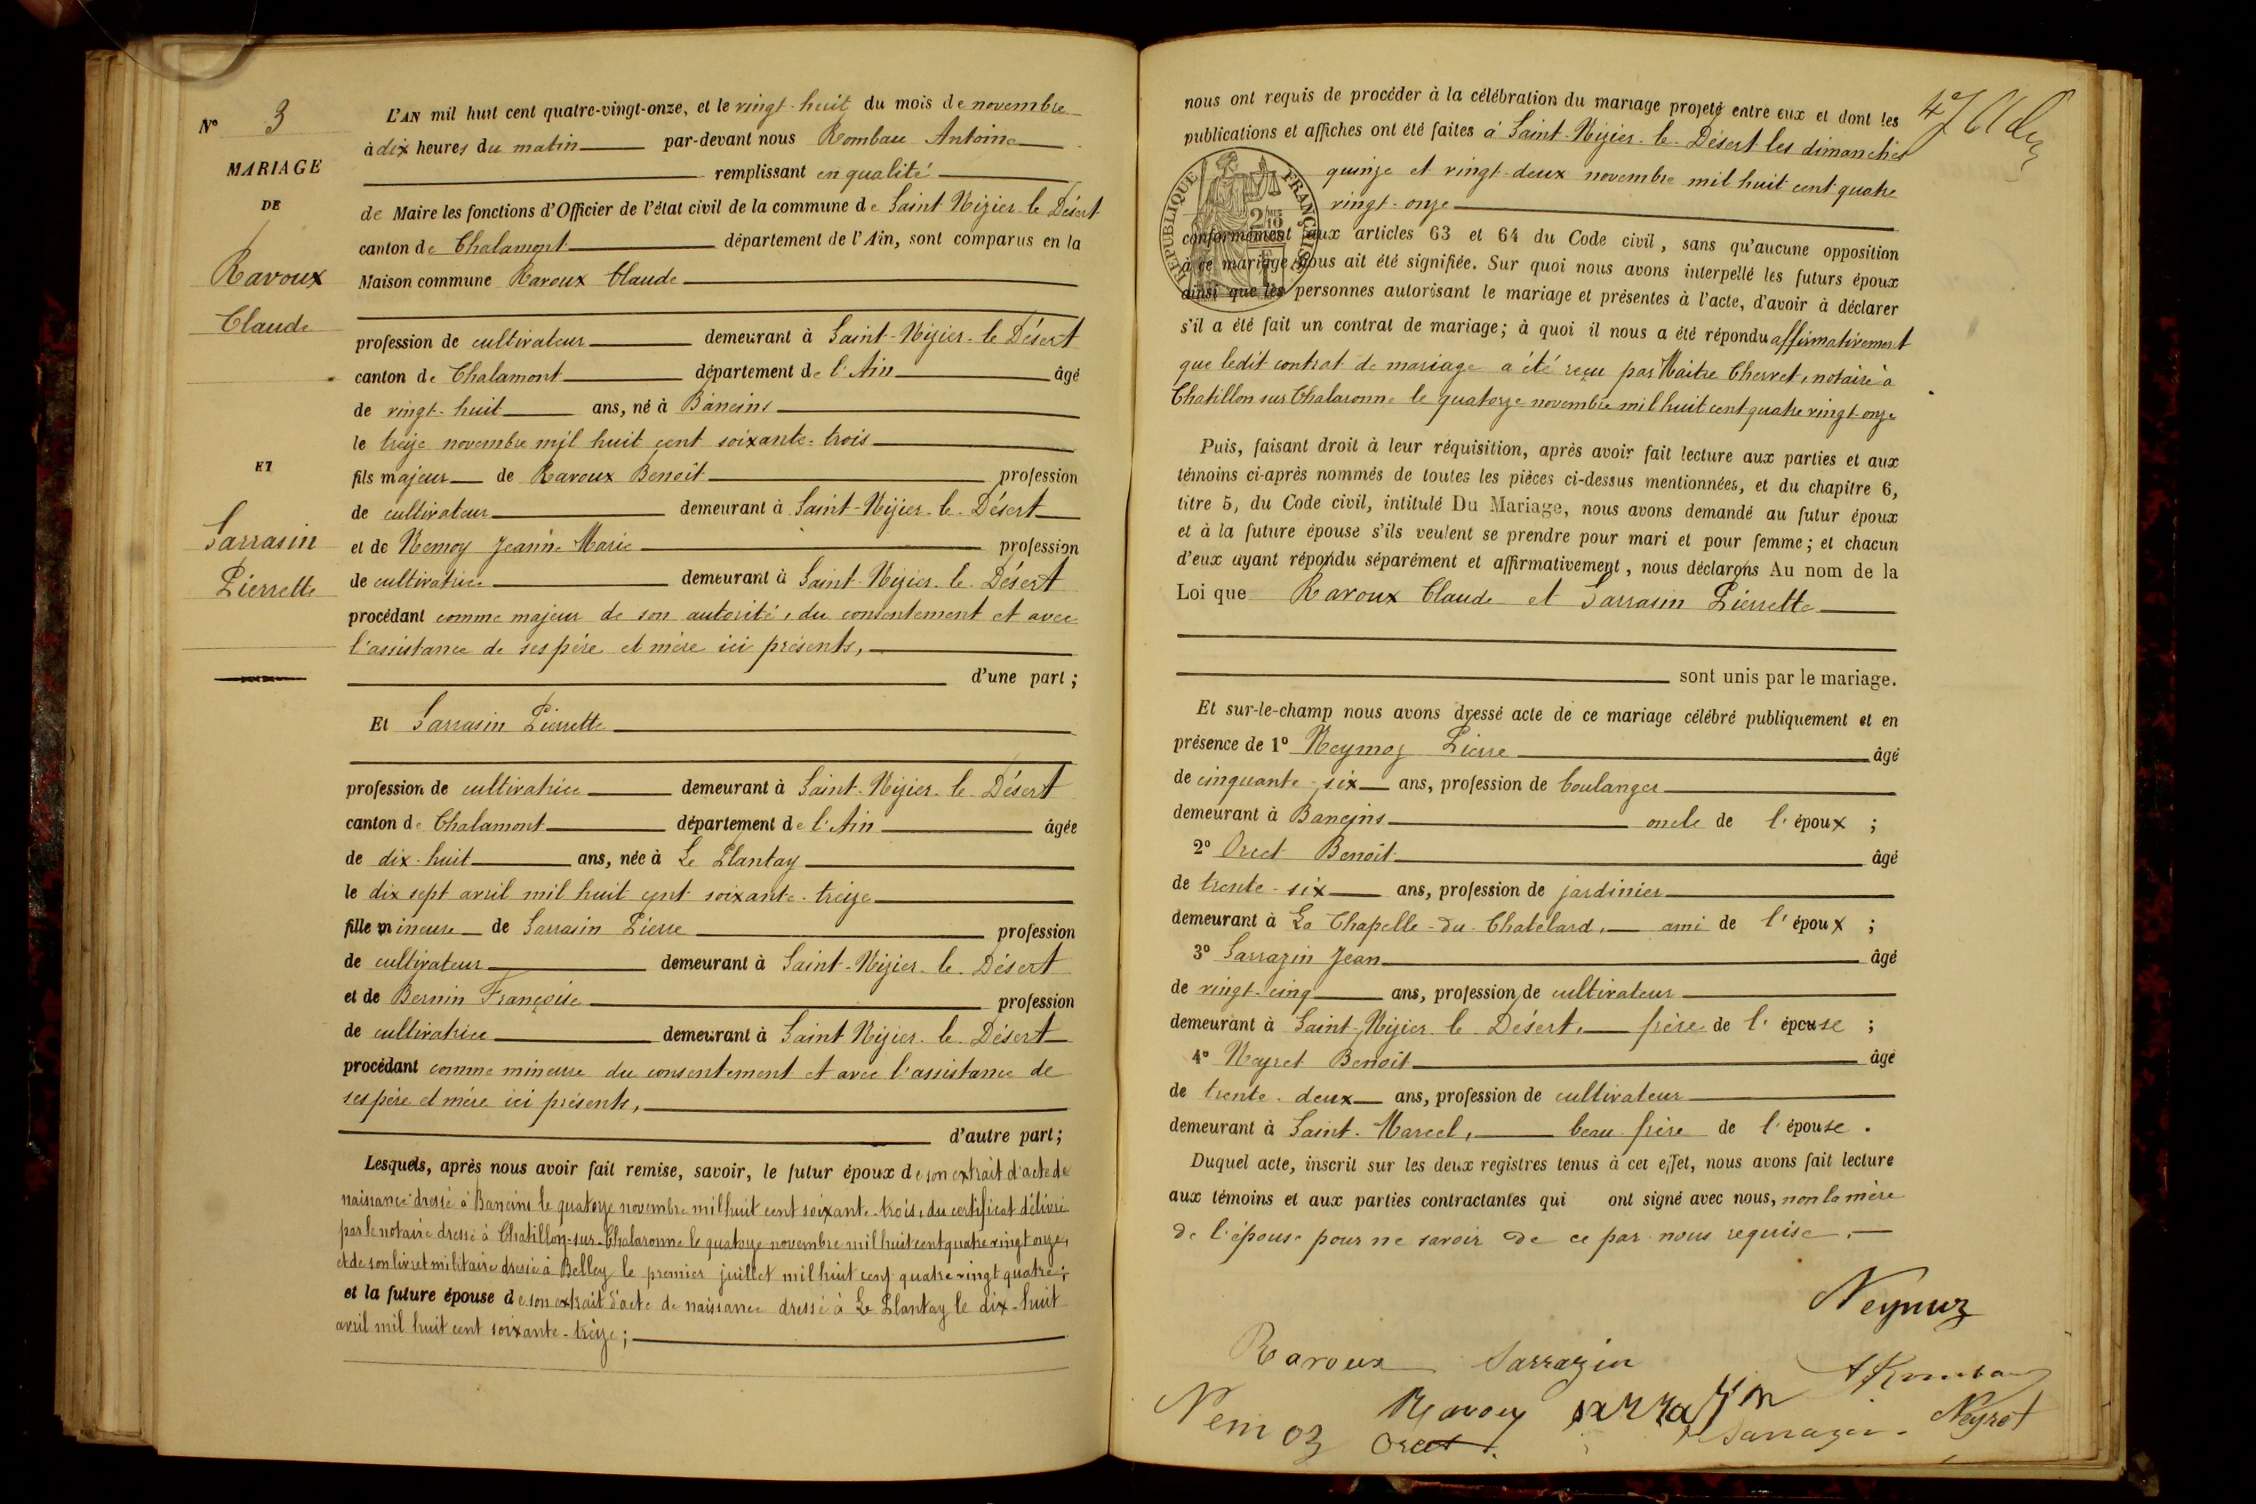 N° 3
MARIAGE
DE
Ravoux
Claude
ET
Sarrasin
Pierrette
L'AN mil huit cent quatre-vingt-onze, et le vingt-huit du mois de novembre
à dix heures du matin par-devant nous Rombau Antoine
remplissant en qualité
de Maire les fonctions d'Officier de l'état civil de la commune de Saint-Nizier-le-Désert
canton de Chalamont département de l'Ain, sont comparus en la
Maison commune Ravoux Claude
profession de cultivateur demeurant à Saint-Nizier-le-Désert
canton de Chalamont département de l'Ain âgé
de vingt-huit ans, né à Baneins
le treize novembre mil huit cent soixante-trois
fils majeur de Ravoux Benoit profession
de cultivateur demeurant à Saint-Nizier-le-Désert
et de Nemoz Jeanne Marie profession
de cultivatrice demeurant à Saint-Nizier-le-Désert
procédant comme majeur de son autorité, du consentement et avec
l'assistance de ses père et mère ici présents,
d'une part;
Et Sarrasin Pierrette
profession de cultivatrice demeurant à Saint-Nizier-le-Désert
canton de Chalamont département de l'Ain âgée
de dix-huit ans, née à Le Plantay
le dix sept avril mil huit cent soixante-treize
fille mineure de Sarrasin Pierre profession
de cultivateur demeurant à Saint-Nizier-le-Désert
et de Bernin Françoise profession
de cultivatrice demeurant à Saint Nizier-le-Désert
procédant comme mineure du consentement et avec l'assistance de
ses père et mère ici présents,
d'autre part;
Lesquels, après nous avoir fait remise, savoir, le futur époux de son extrait d'acte de
naissance dressé à Baneins le quatorze novembre mil huit cent soixante-trois, du certificat délivré
par le notaire dressé à Chatillon-sur-Chalaronne le quatorze novembre mil huit cent quatre vingt onze,
et de son livret militaire dressé à Belley le premier juillet mil huit cent quatre vingt quatre;
et la future épouse de son extrait d'acte de naissance dressé à Le Plantay le dix-huit
avril mil huit cent soixante-treize;
nous ont requis de procéder à la célébration du mariage projeté entre eux et dont les
publications et affiches ont été faites à Saint-Nizier-le-Désert les dimanches
quinze et vingt-deux novembre mil huit cent quatre
vingt-onze
RÉPUBLIQUE FRANÇAISE
conformément aux articles 63 et 64 du Code civil, sans qu'aucune opposition
à ce mariage nous ait été signifiée. Sur quoi nous avons interpellé les futurs époux
ainsi que les personnes autorisant le mariage et présentes à l'acte, d'avoir à déclarer
s'il a été fait un contrat de mariage; à quoi il nous a été répondu affirmativement
que ledit contrat de mariage a été reçu par Maitre Chervet, notaire à
Chatillon sur Chalaronne le quatorze novembre mil huit cent quatre vingt onze
Puis, faisant droit à leur réquisition, après avoir fait lecture aux parties et aux
témoins ci-après nommés de toutes les pièces ci-dessus mentionnées, et du chapitre 6,
titre 5, du Code civil, intitulé Du Mariage, nous avons demandé au futur époux
et à la future épouse s'ils veulent se prendre pour mari et pour femme; et chacun
d'eux ayant répondu séparément et affirmativement, nous déclarons Au nom de la
Loi que Ravoux Claude et Sarrasin Pierrette
sont unis par le mariage.
Et sur-le-champ nous avons dressé acte de ce mariage célébré publiquement et en
présence de 1° Neymoz Pierre âgé
de cinquante-six ans, profession de boulanger
demeurant à Baneins oncle de l'époux ;
2° Orcet Benoit âgé
de trente-six ans, profession de jardinier
demeurant à La Chapelle-du-Chatelard, ami de l'époux ;
3° Sarrazin Jean âgé
de vingt-cinq ans, profession de cultivateur
demeurant à Saint-Nizier le Désert, frère de l'épouse ;
4° Neyret Benoit âgé
de trente-deux ans, profession de cultivateur
demeurant à Saint-Marcel, beau-frère de l'épouse.
Duquel acte, inscrit sur les deux registres tenus à cet effet, nous avons fait lecture
aux témoins et aux parties contractantes qui ont signé avec nous, non la mère
de l'épouse pour ne savoir de ce par nous requise.
Neymoz
Ravoux Sarrazin A Rombau
Nemoz Ravoux sarrazin Neyret
Orcet Sarrazin